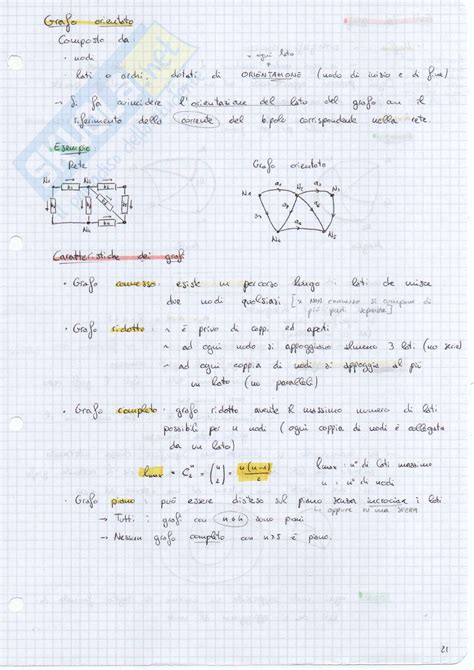 Grafo orientato
Composto da
• nodi
• lati o archi, dotati di ORIENTAZIONE (nodo di inizio e di fine)
ogni lato
→ si fa coincidere l'orientazione del lato del grafo con il
riferimento della corrente del bipolo corrispondente nella rete.
Esempio
Rete
Grafo orientato
N1 N2 N3
N4
N1 N2 N3
N4
Caratteristiche dei grafi
• Grafo connesso esiste un percorso lungo i lati che unisce
due nodi qualsiasi [x non connesso si compone di
più parti separate]
• Grafo ridotto : ~ è privo di cappi ed aperti
~ ad ogni nodo si appoggiano almeno 3 lati (no serie)
~ ad ogni coppia di nodi si appoggia al più
un lato (no paralleli)
• Grafo completo : grafo ridotto avente il massimo numero di lati
possibili per n nodi (ogni coppia di nodi è collegata
da un lato)
lmax = C₂ⁿ = (n 2) = n(n-1)/2
lmax : n° di lati massimo
n : n° di nodi
• Grafo piano : può essere disteso sul piano senza incrociare i lati
oppure su una SFERA
→ Tutti i grafi con n≤4 sono piani
→ Nessun grafo completo con n≥5 è piano.
21